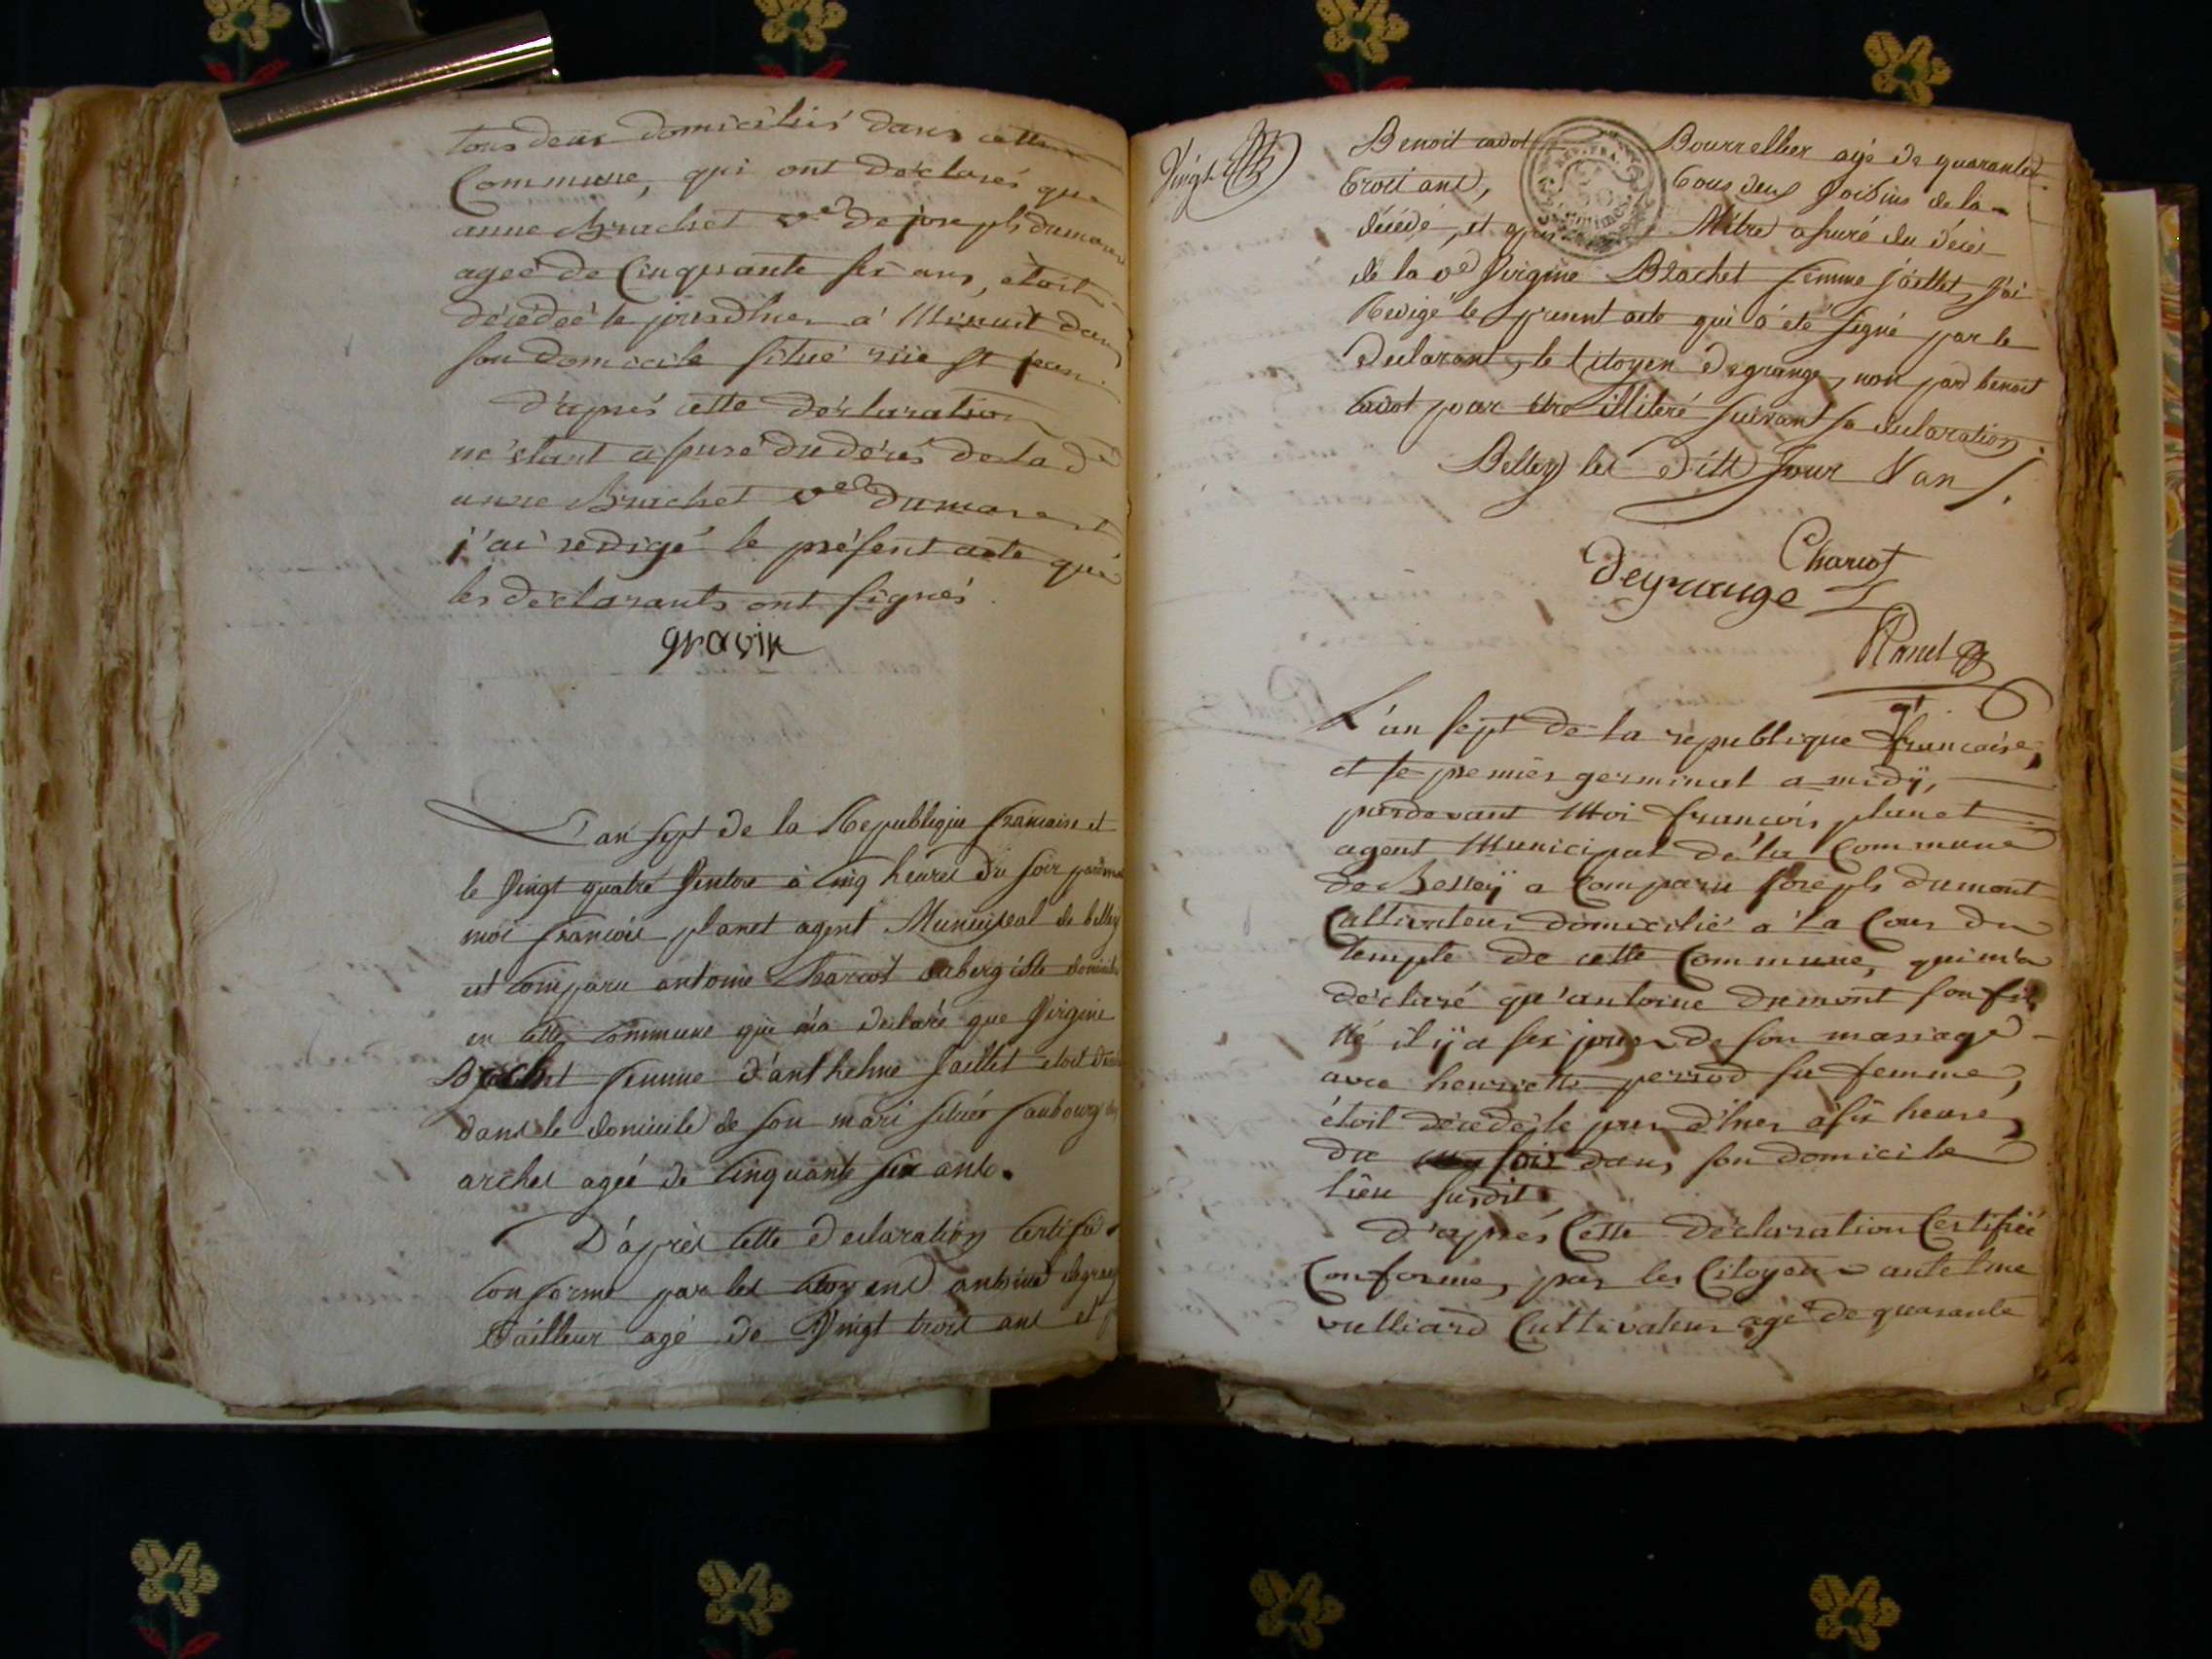 tous deux domiciliés dans cette
Commune, qui ont déclarés que
anne Bruchet ve de joseph dumarest
agée de Cinquante six ans, étoit
décédée le jour d'hier a Minuit dans
son domicile situé rüe St jean.
d'après cette déclaration
m'étant assuré du décès de la de
anne Bruchet ve dumarest
j'ai rédigé le présent acte que
les déclarants ont signés.
gravin
L'an sept de la Republique francaise et
le Vingt quatre Ventose à Cinq heures du soir pardevant
moi francois planet agent Municipal de belley
est comparu antoine Charcot aubergiste domicilié
en cette commune qui m'a declaré que Virginie
Brachet femme d'anthelme Jaillet etoit
dans le domicile de son mari situé faubourg des
arches agée de Cinquante six ans.
D'après cette declaration certifié
conforme par les citoyens antoine degrange
Tailleur agé de Vingt trois ans et
Vingt
Benoit cadot Bourrellier agé de quarante
trois ans, tous deux voisins de la
décédé, et après M'être assuré du décès
de la de Virginie Brachet femme Jaillet, j'ai
Redigé le present acte qui a été signé par le
declarant, le Citoyen degrange, non par benoit
cadot pour être illiteré suivant sa declaration.
Belley les dits Jour & an
Charcot
degrange
Planet
L'an sept de la république francaise,
et le premier germinal a midÿ,
pardevant Moi francois planet
agent Municipal de la Commune
de Belleÿ a Comparu joseph dumont
Cultivateur domicilié a la Cour du
temple de cette Commune, qui m'a
déclaré qu'antoine dumont son fils
né il ÿ a six jours de son mariage
avec henriette perrod sa femme,
étoit décédé le jour d'hier a six heures
du soir dans son domicile
lieu susdit,
d'après Cette déclaration Certifiée
Conforme, par les Citoyens antelme
vulliard Cultivateur agé de quarante